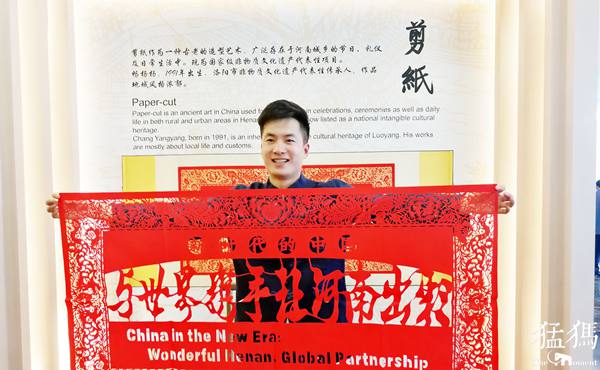 剪紙
剪纸作为一种古老的造型艺术,广泛存在于河南城乡的节日、礼仪
及日常生活中。现为国家级非物质文化遗产代表性项目。
畅杨杨,1991年出生,洛阳市非物质文化遗产代表性传承人,作品
地域风格浓郁。
Paper-cut
Paper-cut is an ancient art in China used celebrations, ceremonies as well as daily
life in both rural and urban areas in listed as a national intangible cultural
heritage.
Chang Yangyang, born in 1991, is an cultural heritage of Luoyang. His works
are mostly about local life and customs.
时代的中
与世界携手让河南出彩
China in the New Era:
Wonderful Henan, Global Partnership
猛獁